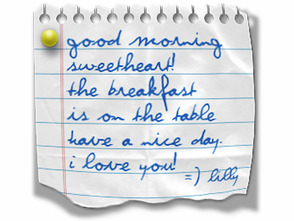 good morning
sweetheart!
the breakfast
is on the table
have a nice day.
i love you!
=) lilly